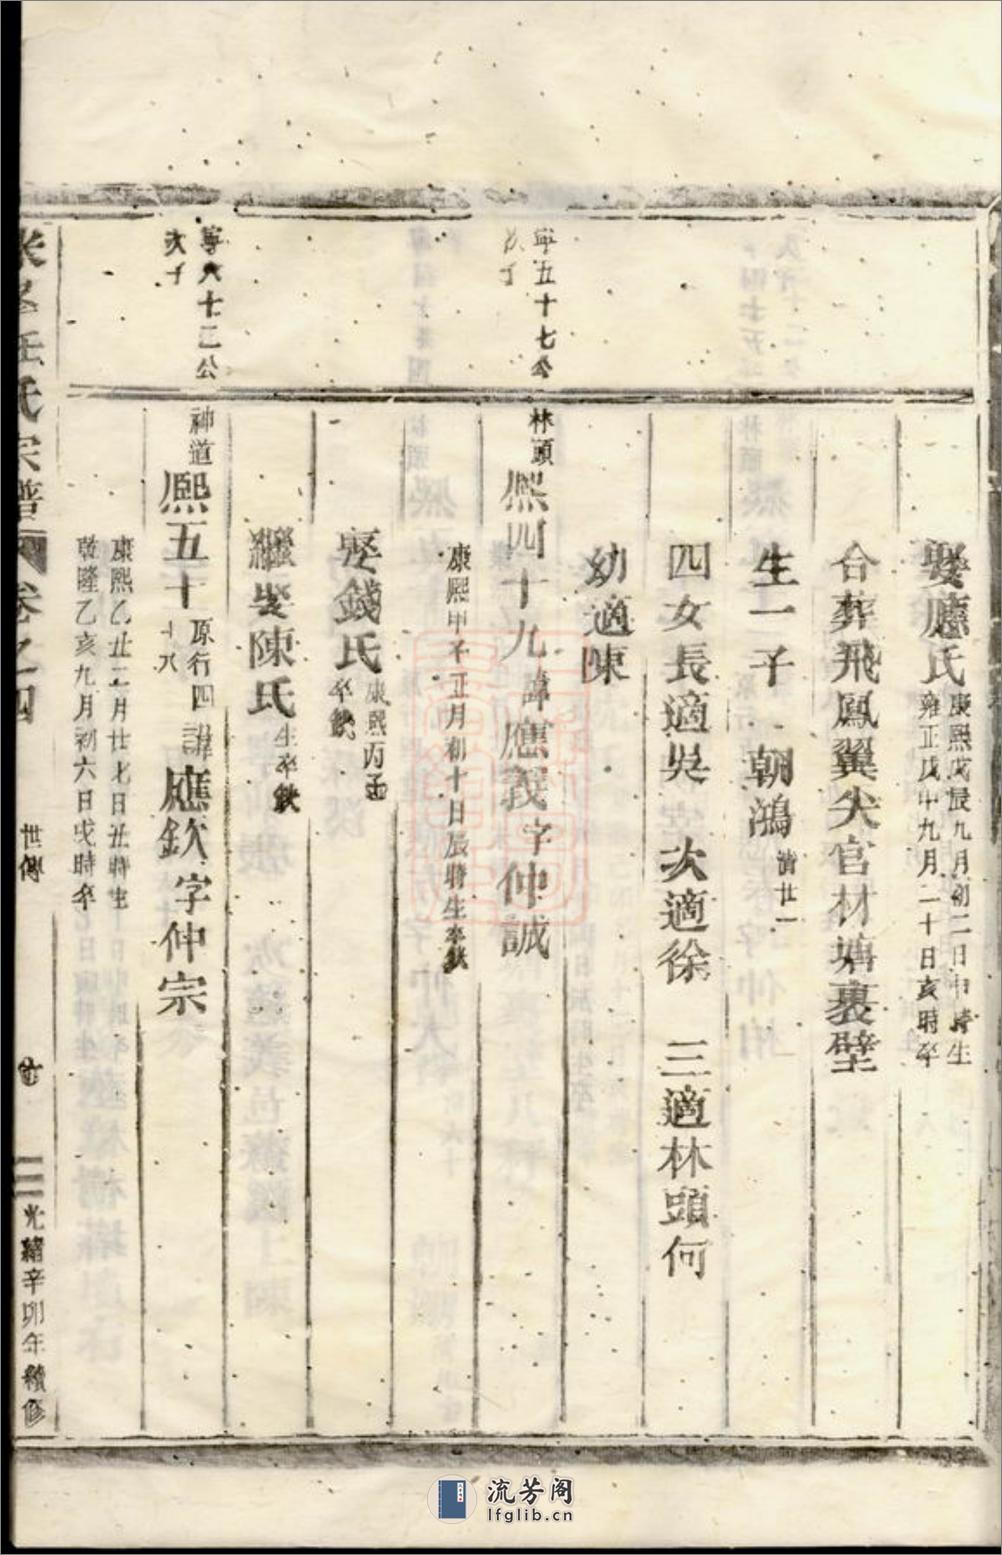 娶應氏康熙戊辰九月初二日申時生
雍正戊申九月二十日亥時卒
合葬飛鳳翼尖官材塘裏壁
生一子 朝鴻清廿一
四女長適吳 次適徐 三適林頭何
幼適陳
寧五十七公
次子
林頭
熈四十九諱應義字仲誠
康熙甲子正月初十日辰時生卒缺
娶錢氏康熙丙子
卒缺
繼娶陳氏生卒缺
寧六十二公
次子
神道
熈五十原行四十八諱應欽字仲宗
康熙乙丑二月廿七日丑時生
乾隆乙亥九月初六日戌時卒
氏宗譜 卷之四 世傳
光緒辛卯年續修
流芳阁
lfglib.cn